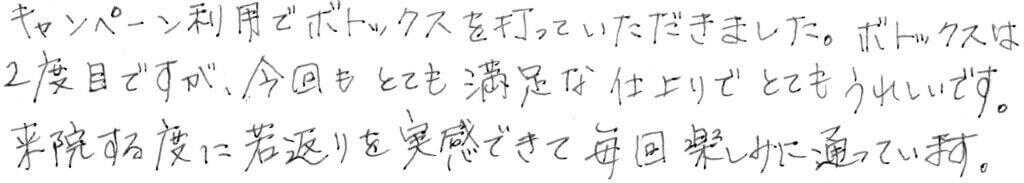 キャンペーン利用でボトックスを打っていただきました。ボトックスは
2度目ですが、今回もとても満足な仕上りでとてもうれしいです。
来院する度に若返りを実感できて毎回楽しみに通っています。